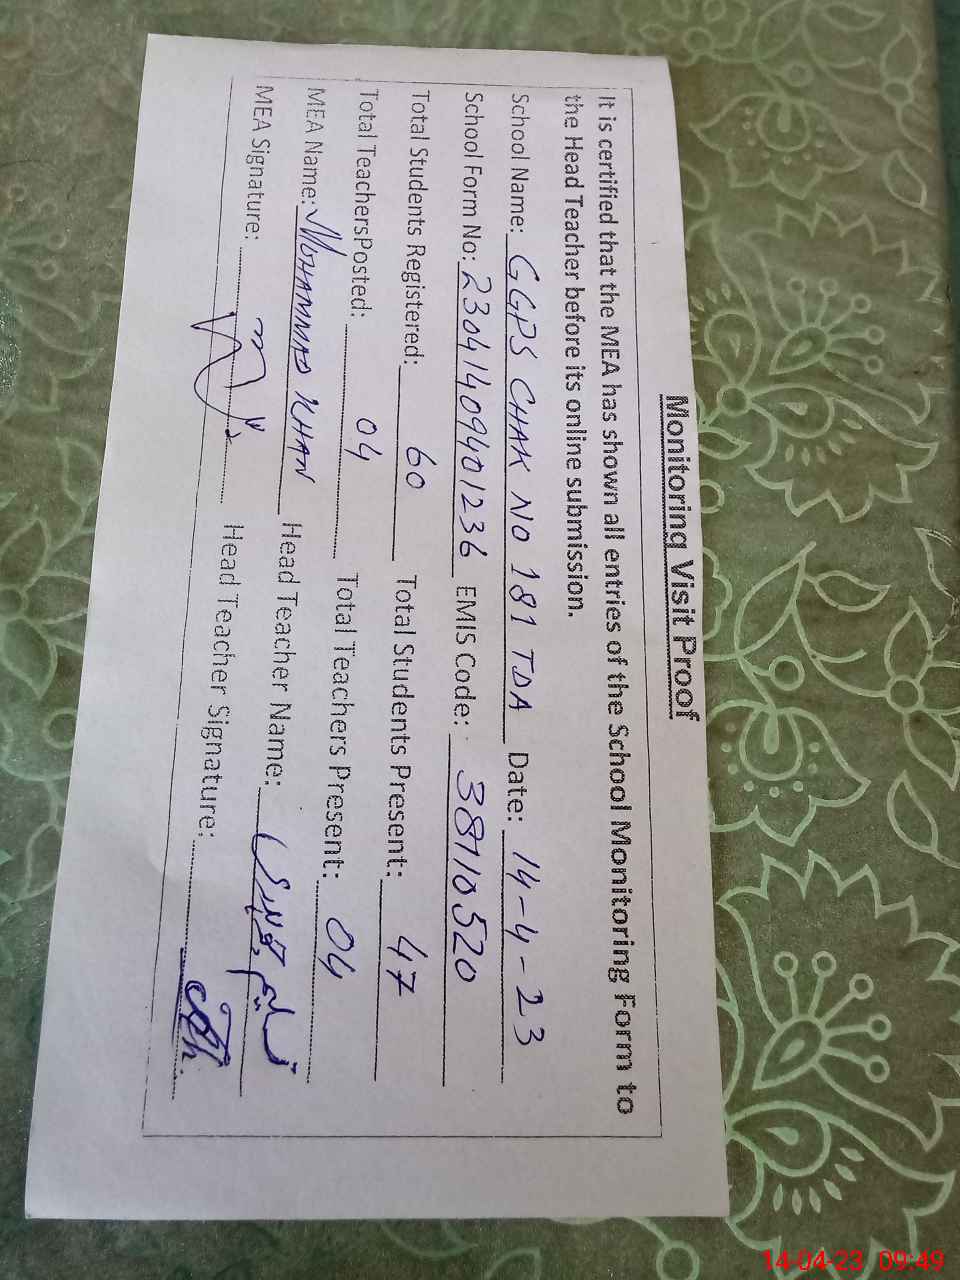 Monitoring Visit Proof
It is certified that the MEA has shown all entries of the School Monitoring Form to
the Head Teacher before its online submission.
School Name: GGPS CHAK NO 181 TDA Date: 14-4-23
School Form No: 23041409401236 EMIS Code: 38110520
Total Students Registered: 60 Total Students Present: 47
Total TeachersPosted: 04 Total Teachers Present: 04
MEA Name: MOHAMMAD KHAN Head Teacher Name:
MEA Signature: Head Teacher Signature:
14-04-23 09:49